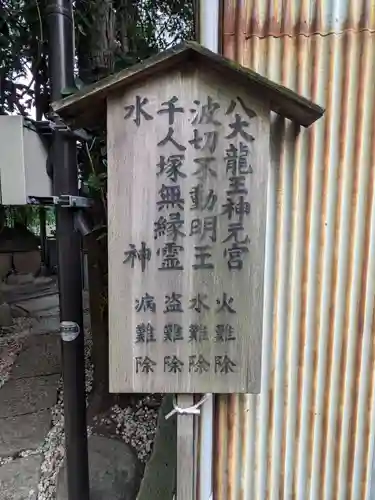 八大龍王神元宮　火難除
波切不動明王　水難除
千人塚無縁霊　盗難除
水神　病難除